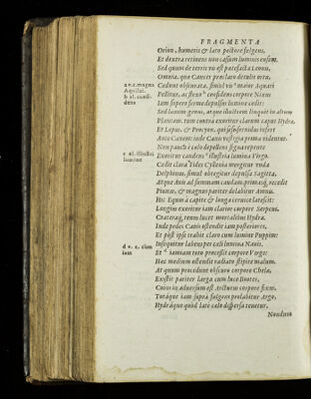 FRAGMENTA
Orion, humeris & lato pectore fulgens,
Et dextra retinens non cassum luminis ensem.
Sed quum de terris est patefacta Leonis,
Omnia, quæ Cancer præclaro detulit ortu,
a v. c. magna
Aquilai.
Cedunt obscurata, simul maior Aquari
b al. consi-
dens
Pellitur, ac flexo considens corpore Nixus
Iam supero ferme depulsus lumine cedit:
Sed lævum genus, atque illustrem linquit in altum
Plantam. tum contra exoritur clarum caput Hydræ,
Et Lepus, & Procyon, qui sese feruidus infert
Ante Canem: inde Canis vestigia prima videntur.
Non pauca è cælo depellens signa repente
c al. illustri
lumine
Exoritur candens illustria lumina Virgo.
Cedit clara Fides Cyllenia mergitur vnda
Delphinus, simul obtegitur depulsa Sagitta.
Atque Auis ad summam caudam primasq; recedit
Pinnas, & magnus pariter delabitur Amnis.
Hic Equus à capite & longa ceruice latescit:
Longius exoritur iam claro corpore Serpens,
Crateraq; tenus lucet mortalibus Hydra.
Inde pedes Canis ostendit iam posteriores,
Et post ipse trahit claro cum lumine Puppim:
d v. c. cum
iam
Insequitur labens per cæli lumina Nauis.
Et iamiam toto processit corpore Virgo:
Hæc medium ostendit radiato stipite malum.
At quum procedunt obscuro corpore Chelæ,
Existit pariter larga cum luce Bootes,
Cuius in aduersum est Arcturus corpore fixus.
Totaque iam supra fulgens prolabitur Argo,
Hydraque quod latè cælo dispersa tenetur,
Nondum